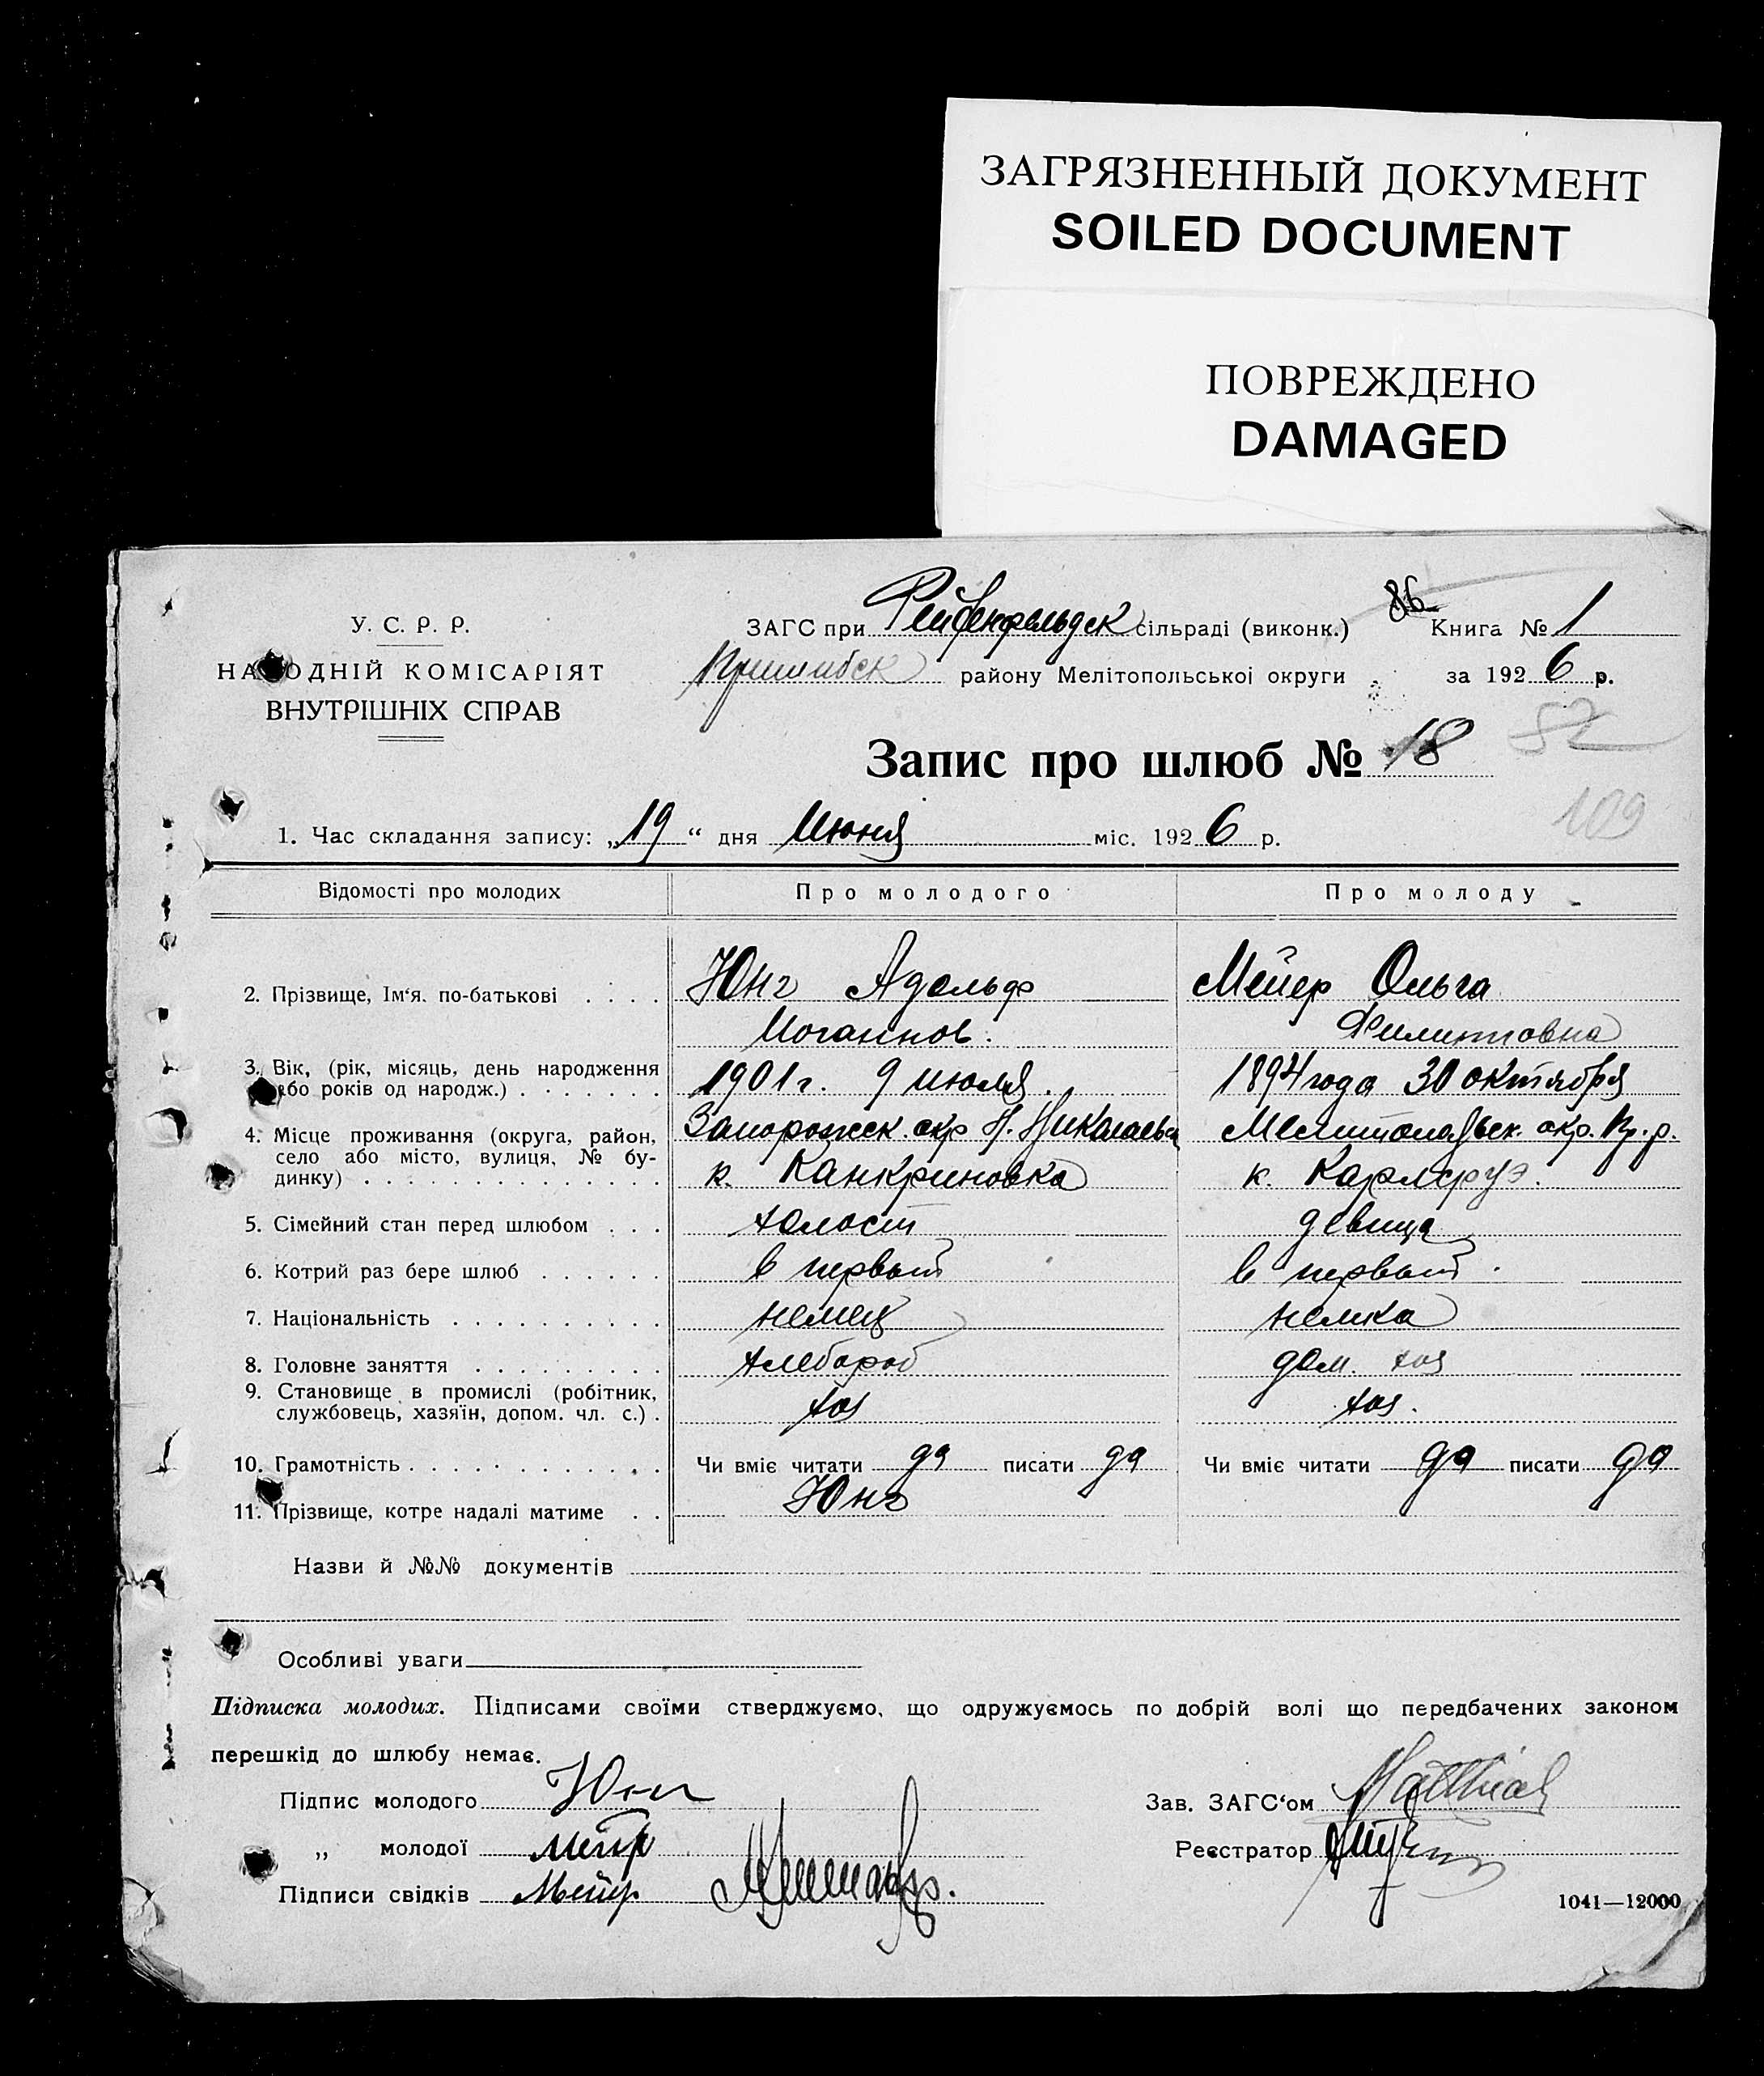 ЗАГРЯЗНЕННЫЙ ДОКУМЕНТ
SOILED DOCUMENT
ПОВРЕЖДЕНО
DAMAGED
У. С. Р. Р.
НАРОДНІЙ КОМІСАРІЯТ
ВНУТРІШНІХ СПРАВ
ЗАГС при Рейхенфельдск сільраді (виконк.) 86 Книга № 1
Пришибск району Мелітопольської округи за 1926 р.
Запис про шлюб № 18 82
109
1. Час складання запису: „19" дня Июня міс. 1926 р.
Відомості про молодих Про молодого Про молоду
2. Прізвище, Ім'я, по-батькові Юнг Адольф Мейер Ольга
Иоганнов. Филипповна
3. Вік, (рік, місяць, день народження
або років од народж.) 1901 г. 9 июля. 1894 года 30 октября
4. Місце проживання (округа, район, Запорожск. окр Н. Николаевск Мелитопольск. окр. Пр. р.
село або місто, вулиця, № бу-
динку) к. Канкриновка к. Карлсруэ.
5. Сімейний стан перед шлюбом холост девица
6. Котрий раз бере шлюб в первый в первый
7. Національність немец немка
8. Головне заняття хлебороб дом. хоз
9. Становище в промислі (робітник,
службовець, хазяїн, допом. чл. с.) хоз хоз.
10. Грамотність Чи вміє читати да писати да Чи вміє читати да писати да
11. Прізвище, котре надалі матиме Юнг
Назви й №№ документів
Особливі уваги
Підписка молодих. Підписами своїми стверджуємо, що одружуємось по добрій волі що передбачених законом
перешкід до шлюбу немає.
Підпис молодого Юнг Зав. ЗАГС'ом Matthias
„ молодої Мейер Реєстратор
Підписи свідків Мейер
1041—12000